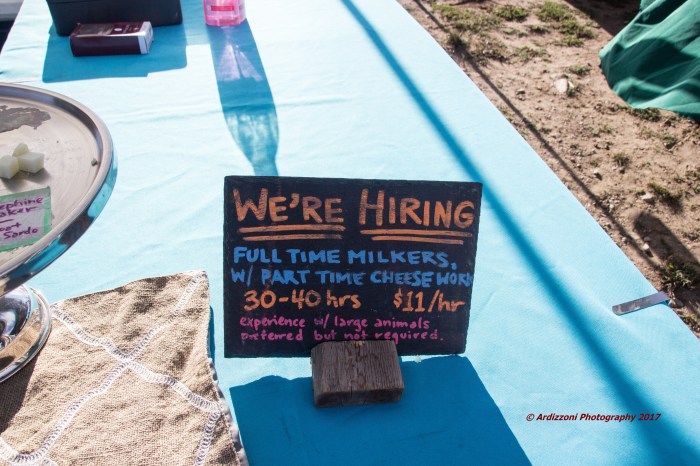 WE'RE HIRING
FULL TIME MILKERS,
W/ PART TIME CHEESE WORK
30-40 hrs $11/hr
experience w/ large animals
preferred but not required.
Sardo
© Ardizzoni Photography 2017